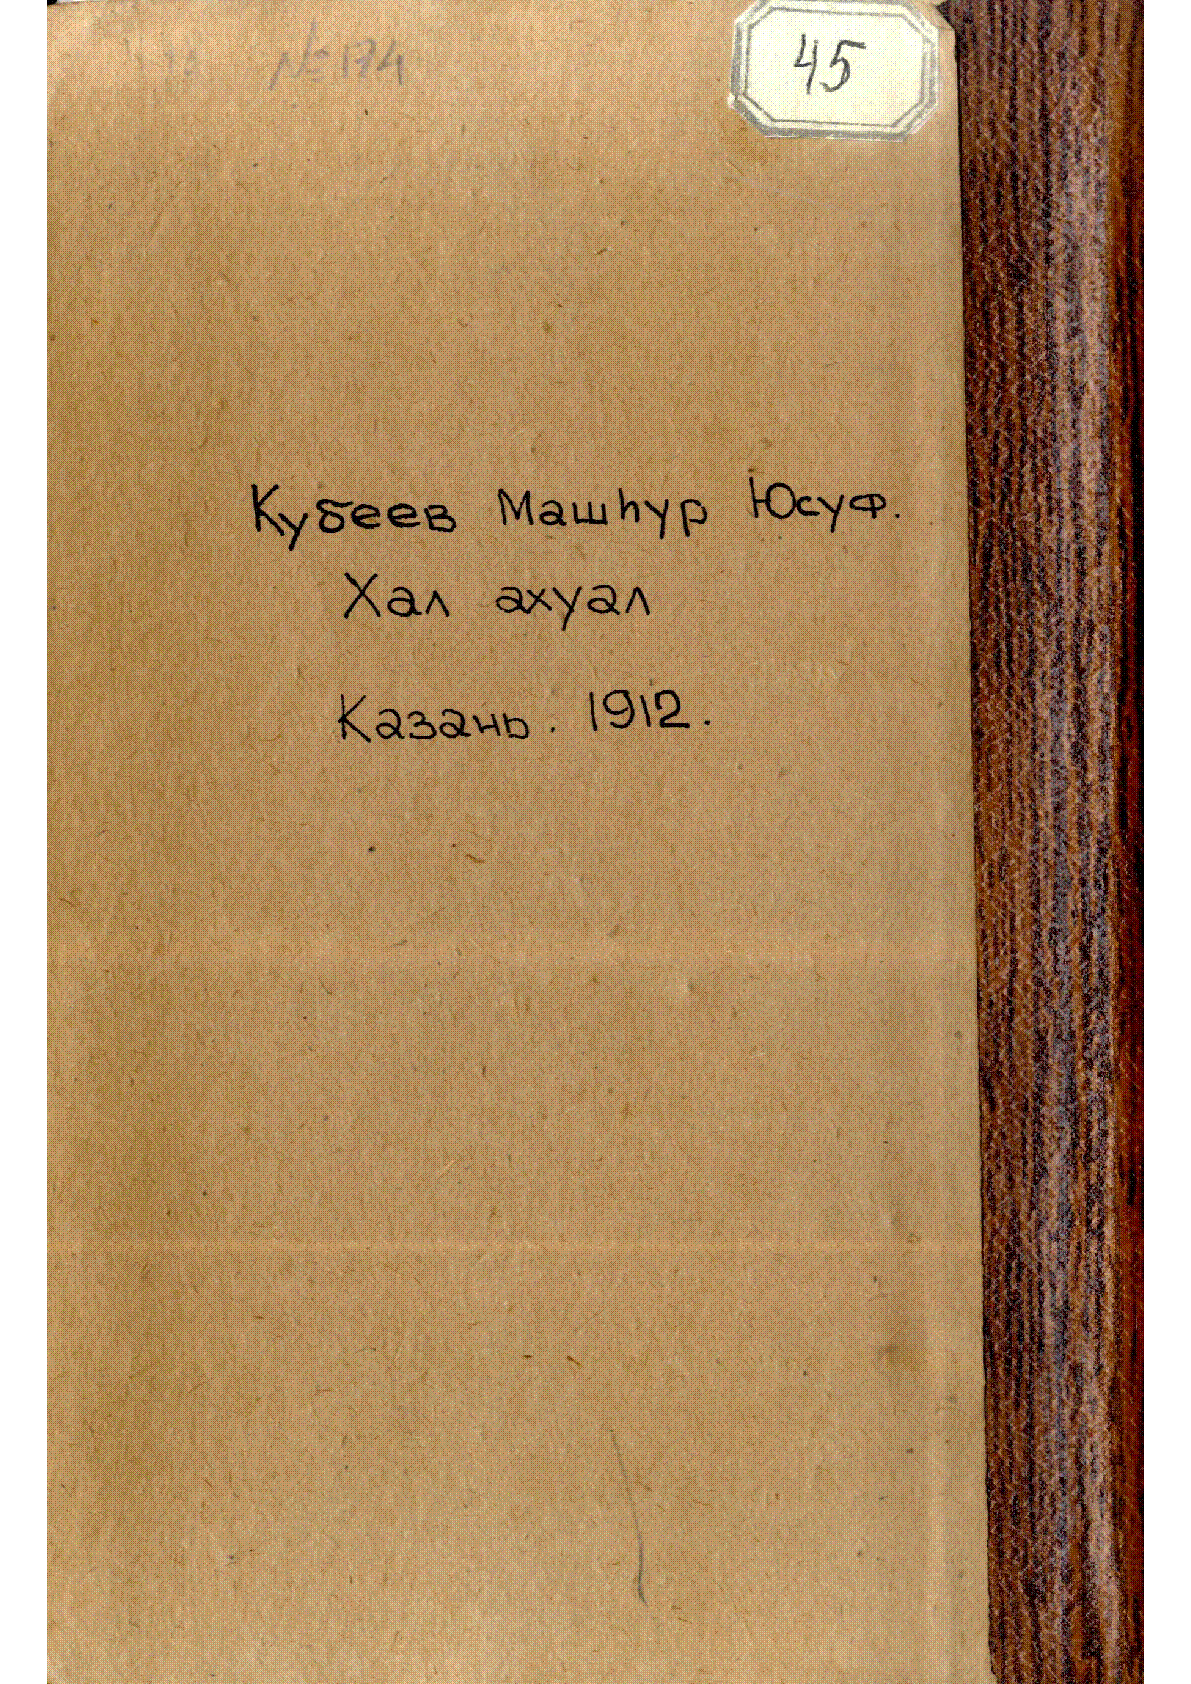 № 174
45
Кубеев Машһур Юсуф.
Хал ахуал
Казань. 1912.